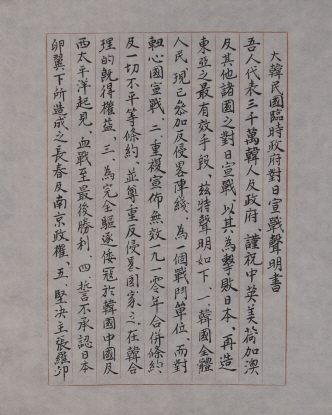 大韓民國臨時政府對日宣戰聲明書
吾人代表三千萬韓人及政府 謹祝中英美荷加澳
及其他諸國之對日宣戰、以其為擊敗日本、再造
東亞之最有效手段、茲特聲明如下、一、韓國全體
人民現已參加反侵畧陣綫、為一個戰鬥單位、而對
軸心國宣戰、二、重複宣佈無效一九一零年合併條約、
及一切不平等條約、並尊重反侵畧國家之在韓合
理的旣得權益、三、為完全驅逐倭寇於韓國中國及
西太平洋起見、血戰至最後勝利、四、誓不承認日本
卵翼下所造成之長春及南京政權、五、堅决主張羅邱